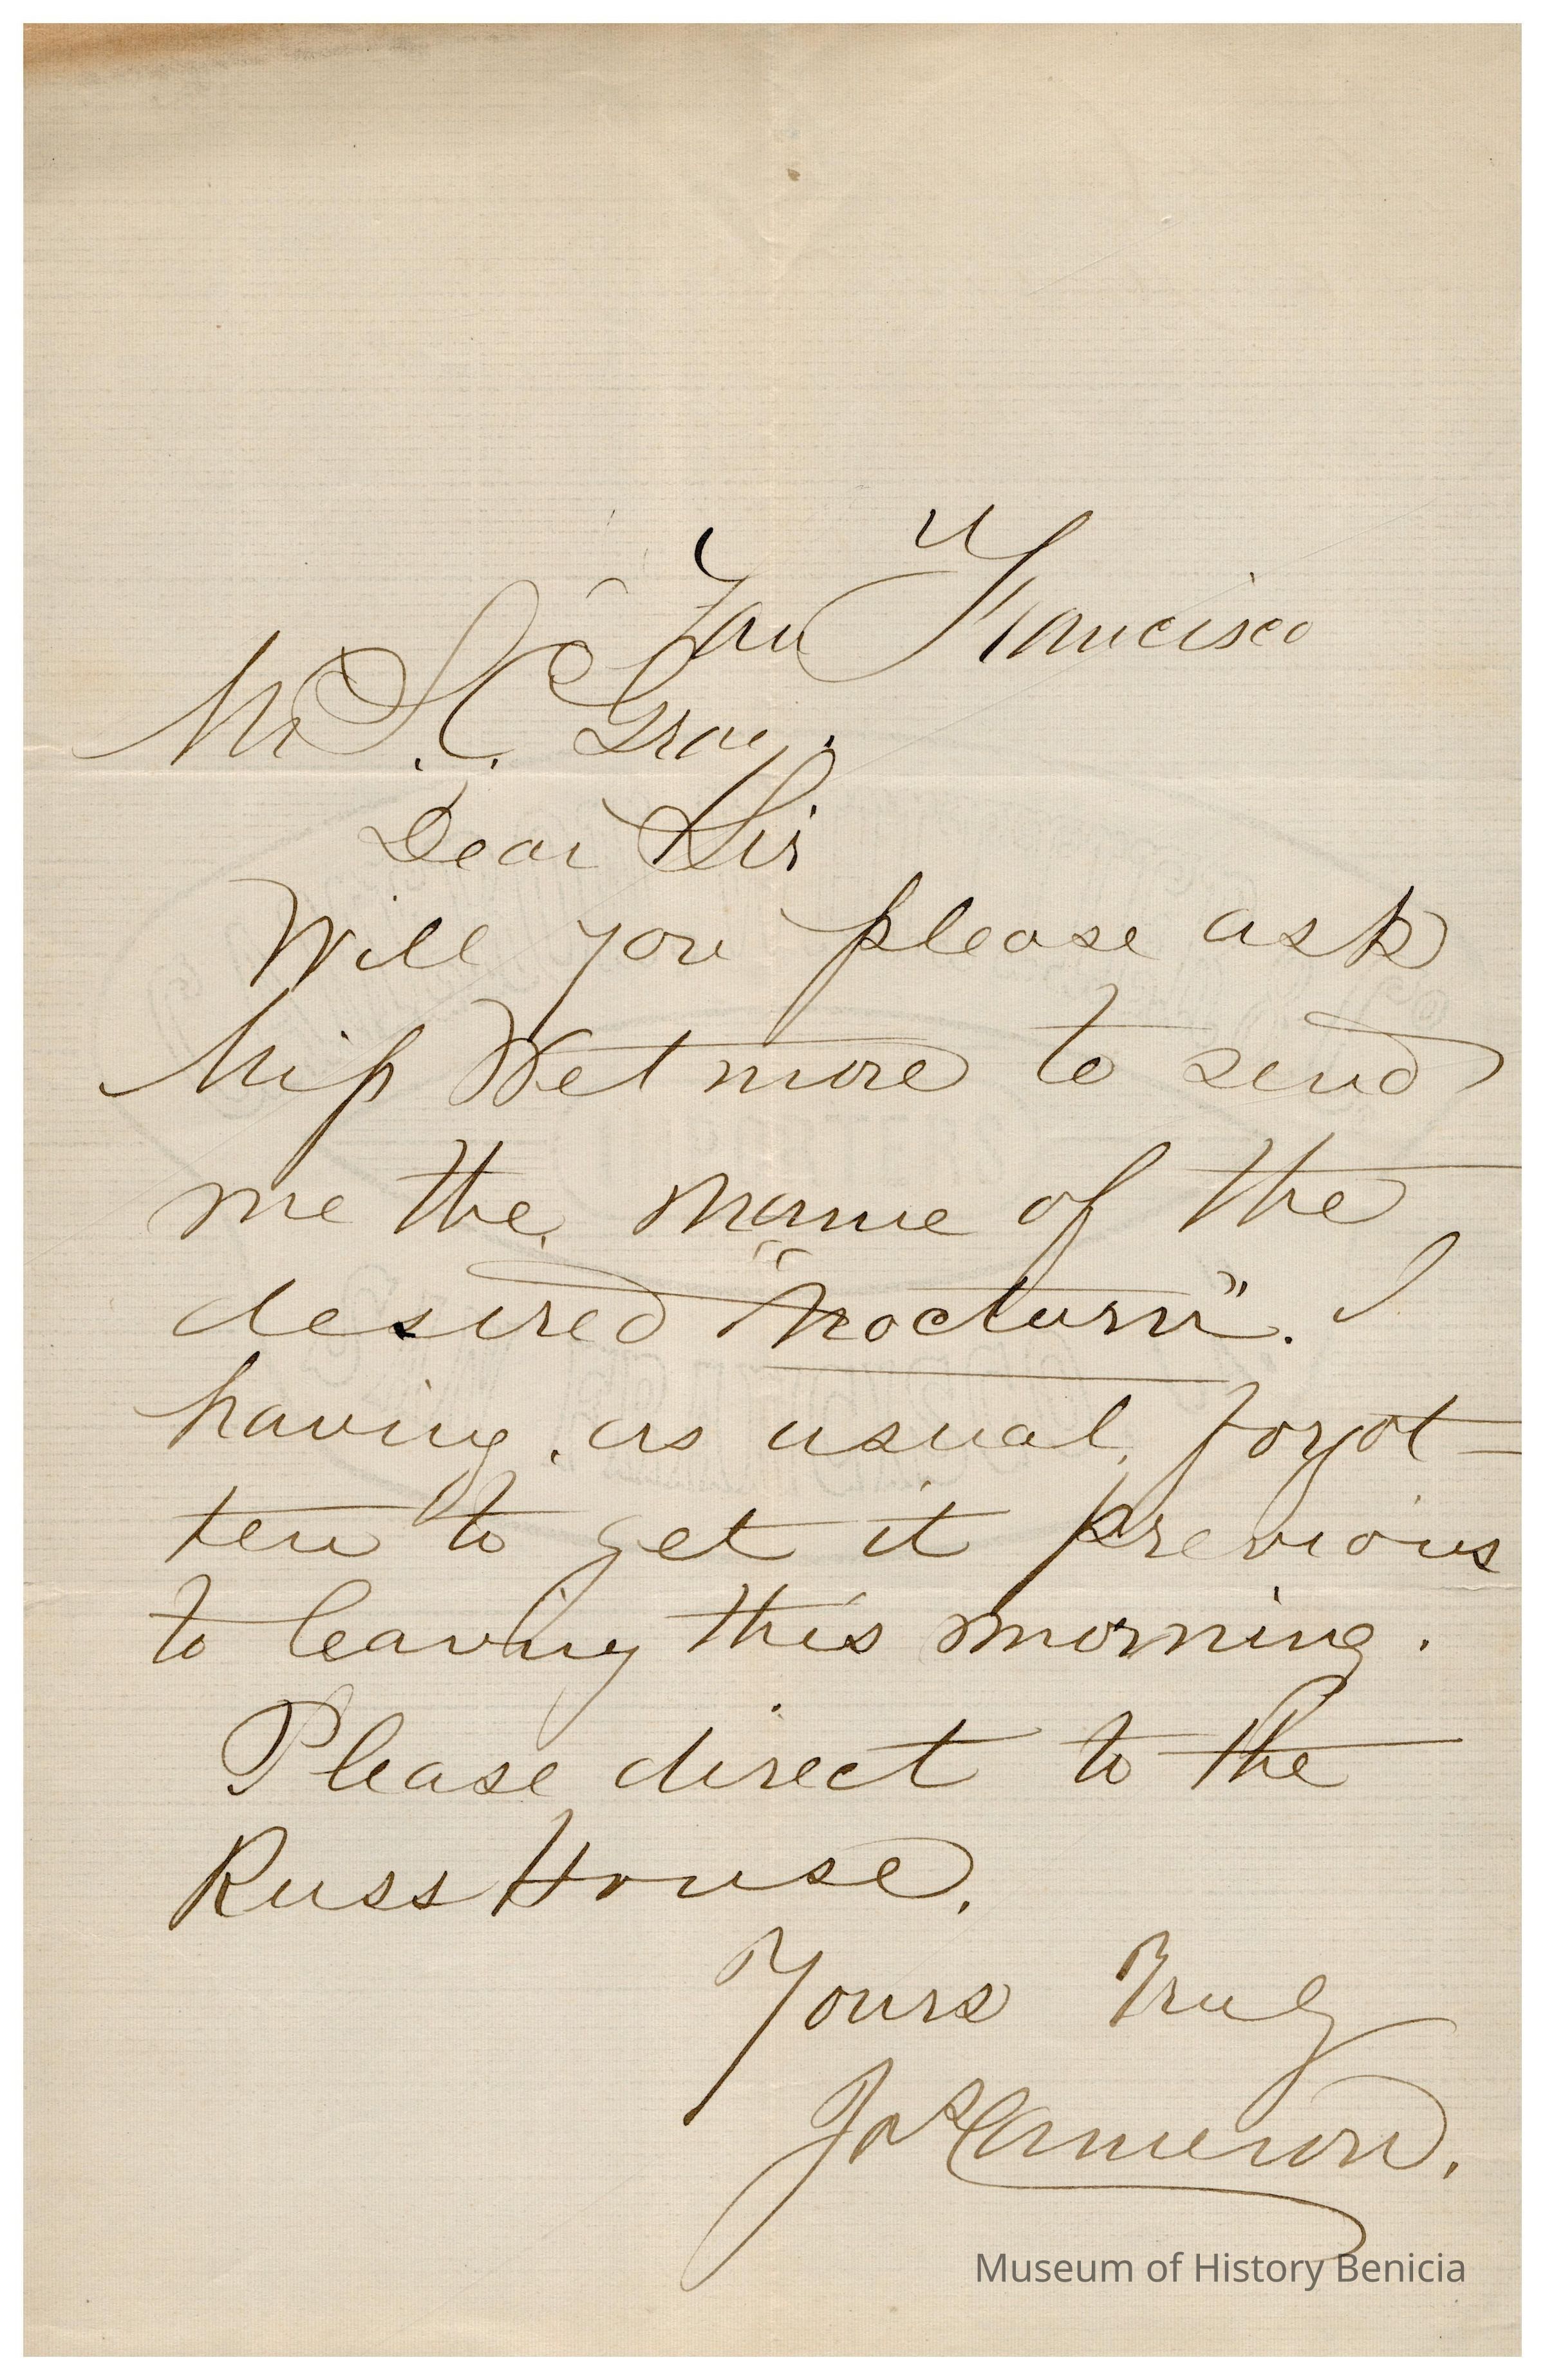 San Francisco
Mr S. C. Gray.
Dear Sir
Will you please ask
Miss Wetmore to send
me the name of the
desired "Nocturn". I
having, as usual, forgot-
ten to get it previous
to leaving this morning.
Please direct to the
Russ House.
Yours Truly
Jas Cameron.
Museum of History Benicia